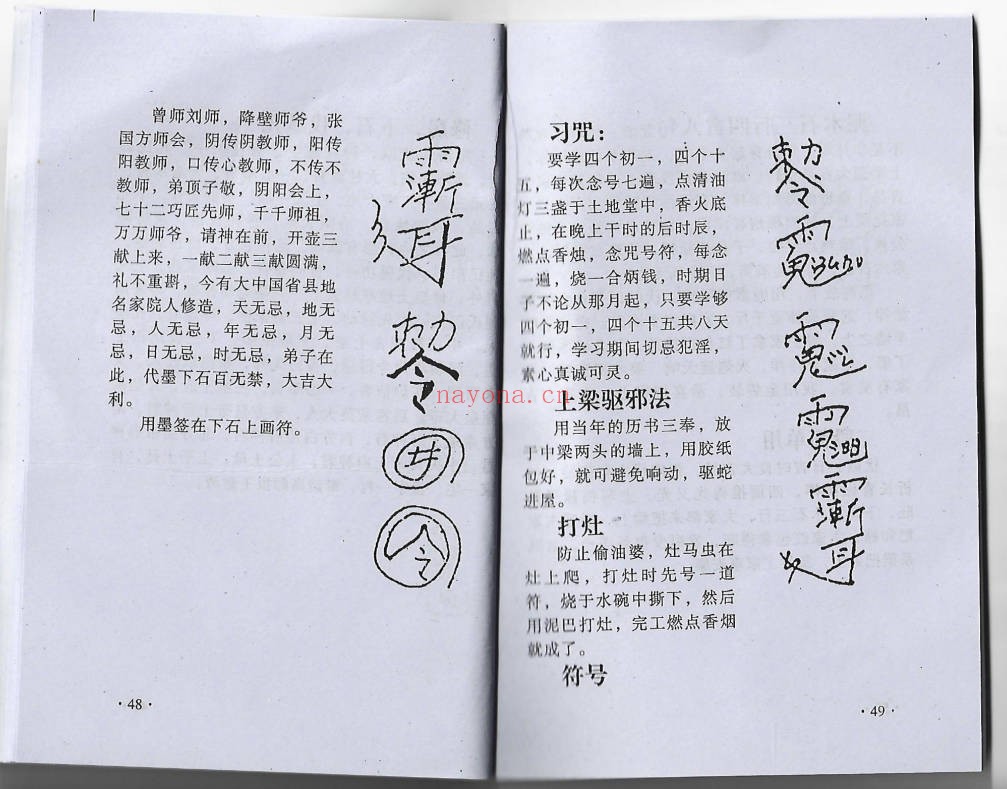 曾师刘师，降壁师爷，张
国方师会，阴传阴教师，阳传
阳教师，口传心教师，不传不
教师，弟顶子敬，阴阳会上，
七十二巧匠先师，千千师祖，
万万师爷，请神在前，开壶三
献上来，一献二献三献圆满，
礼不重斟，今有大中国省县地
名家院人修造，天无忌，地无
忌，人无忌，年无忌，月无
忌，日无忌，时无忌，弟子在
此，代墨下石百无禁，大吉大
利。
用墨签在下石上画符。
·48·
习咒：
要学四个初一，四个十
五，每次念号七遍，点清油
灯三盏于土地堂中，香火底
止，在晚上干时的后时辰，
燃点香烛，念咒号符，每念
一遍，烧一合炳钱，时期日
子不论从那月起，只要学够
四个初一，四个十五共八天
就行，学习期间切忌犯淫，
素心真诚可灵。
上梁驱邪法
用当年的历书三奉，放
于中梁两头的墙上，用胶纸
包好，就可避免响动，驱蛇
进屋。
打灶
防止偷油婆，灶马虫在
灶上爬，打灶时先号一道
符，烧于水碗中撕下，然后
用泥巴打灶，完工燃点香烟
就成了。
符号
·49·
nayona.cn